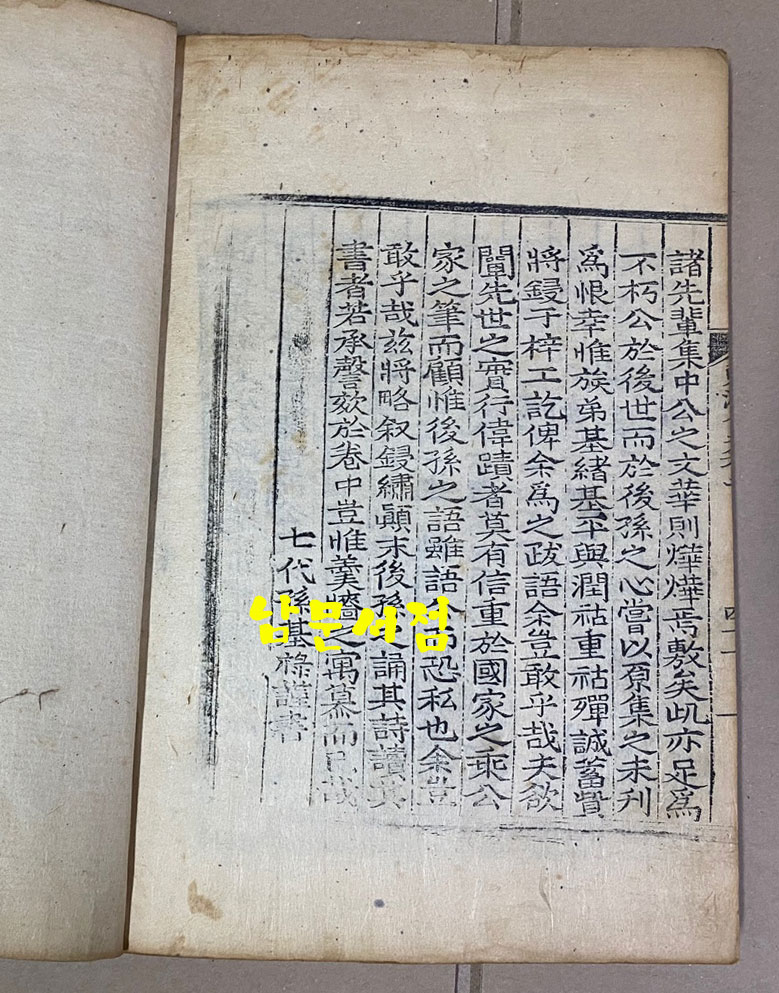 諸先輩集中公之文華則燁燁焉敷矣此亦足爲
不朽公於後世而於後孫之心嘗以原集之未刊
爲恨幸惟族弟基緖基平與潤祜重祜殫誠蓄貲
將鋟于梓工訖俾余爲之跋語余豈敢乎哉夫欲
闡先世之實行偉蹟者莫有信重於國家之乘公
家之筆而顧惟後孫之語雖語公而恐私也余豈
敢乎哉玆將略叙鋟繡顚末後孫之誦其詩讀其
書者若承謦欬於卷中豈惟羹墻之寓慕而已哉
七代孫基祿謹書
남문서점